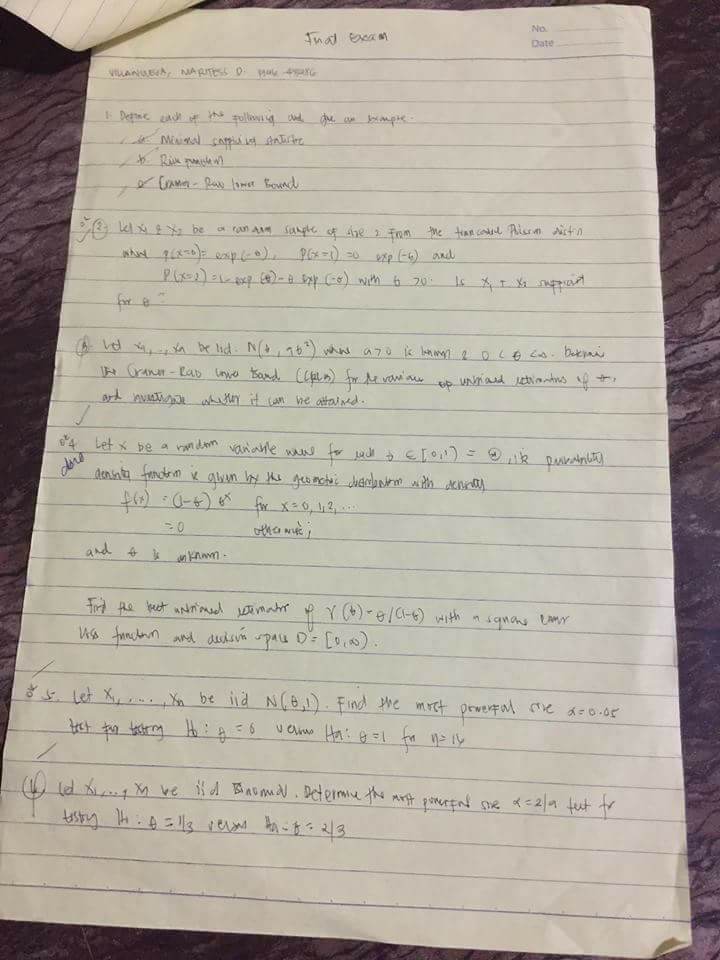 Final Exam
No.
Date
VILLANUEVA, MARITESS D.
1. Define each of the following and give an example.
a. Minimal sufficient statistic
b. Risk function
c. Cramer-Rao lower Bound
2. Let X1 & X2 be a random sample of size 2 from the truncated Poisson dist'n
where P(X=0) = exp(-θ), P(X=1) = θ exp(-θ) and
P(X=2) = 1 - exp(-θ) - θ exp(-θ) with θ > 0. Is X1 + X2 sufficient
for θ?
Let X1, .., Xn be iid. N(θ, aθ²) where a>0 is known & 0 < θ < ∞. Determine
the Cramer-Rao lower Bound (CRLB) for the variance of unbiased estimators of θ,
and investigate whether it can be attained.
4. Let X be a random variable where for each θ ∈ [0,1) = Θ, its probability
done
density function is given by the geometric distribution with density
f(x) = (1-θ) θ^x for x = 0, 1, 2, ...
= 0 otherwise;
and θ is unknown.
Find the best unbiased estimator of γ(θ) = θ/(1-θ) with a square error
loss function and decision space D = [0,∞).
5. Let X1, ....., Xn be iid N(θ,1). Find the most powerful size α=0.05
test for testing H0: θ = 0 versus Ha: θ = 1 for n=16
Let X1, .., Xn be iid Binomial. Determine the most powerful size α = 2/9 test for
testing H0: θ = 1/3 versus Ha: θ = 2/3